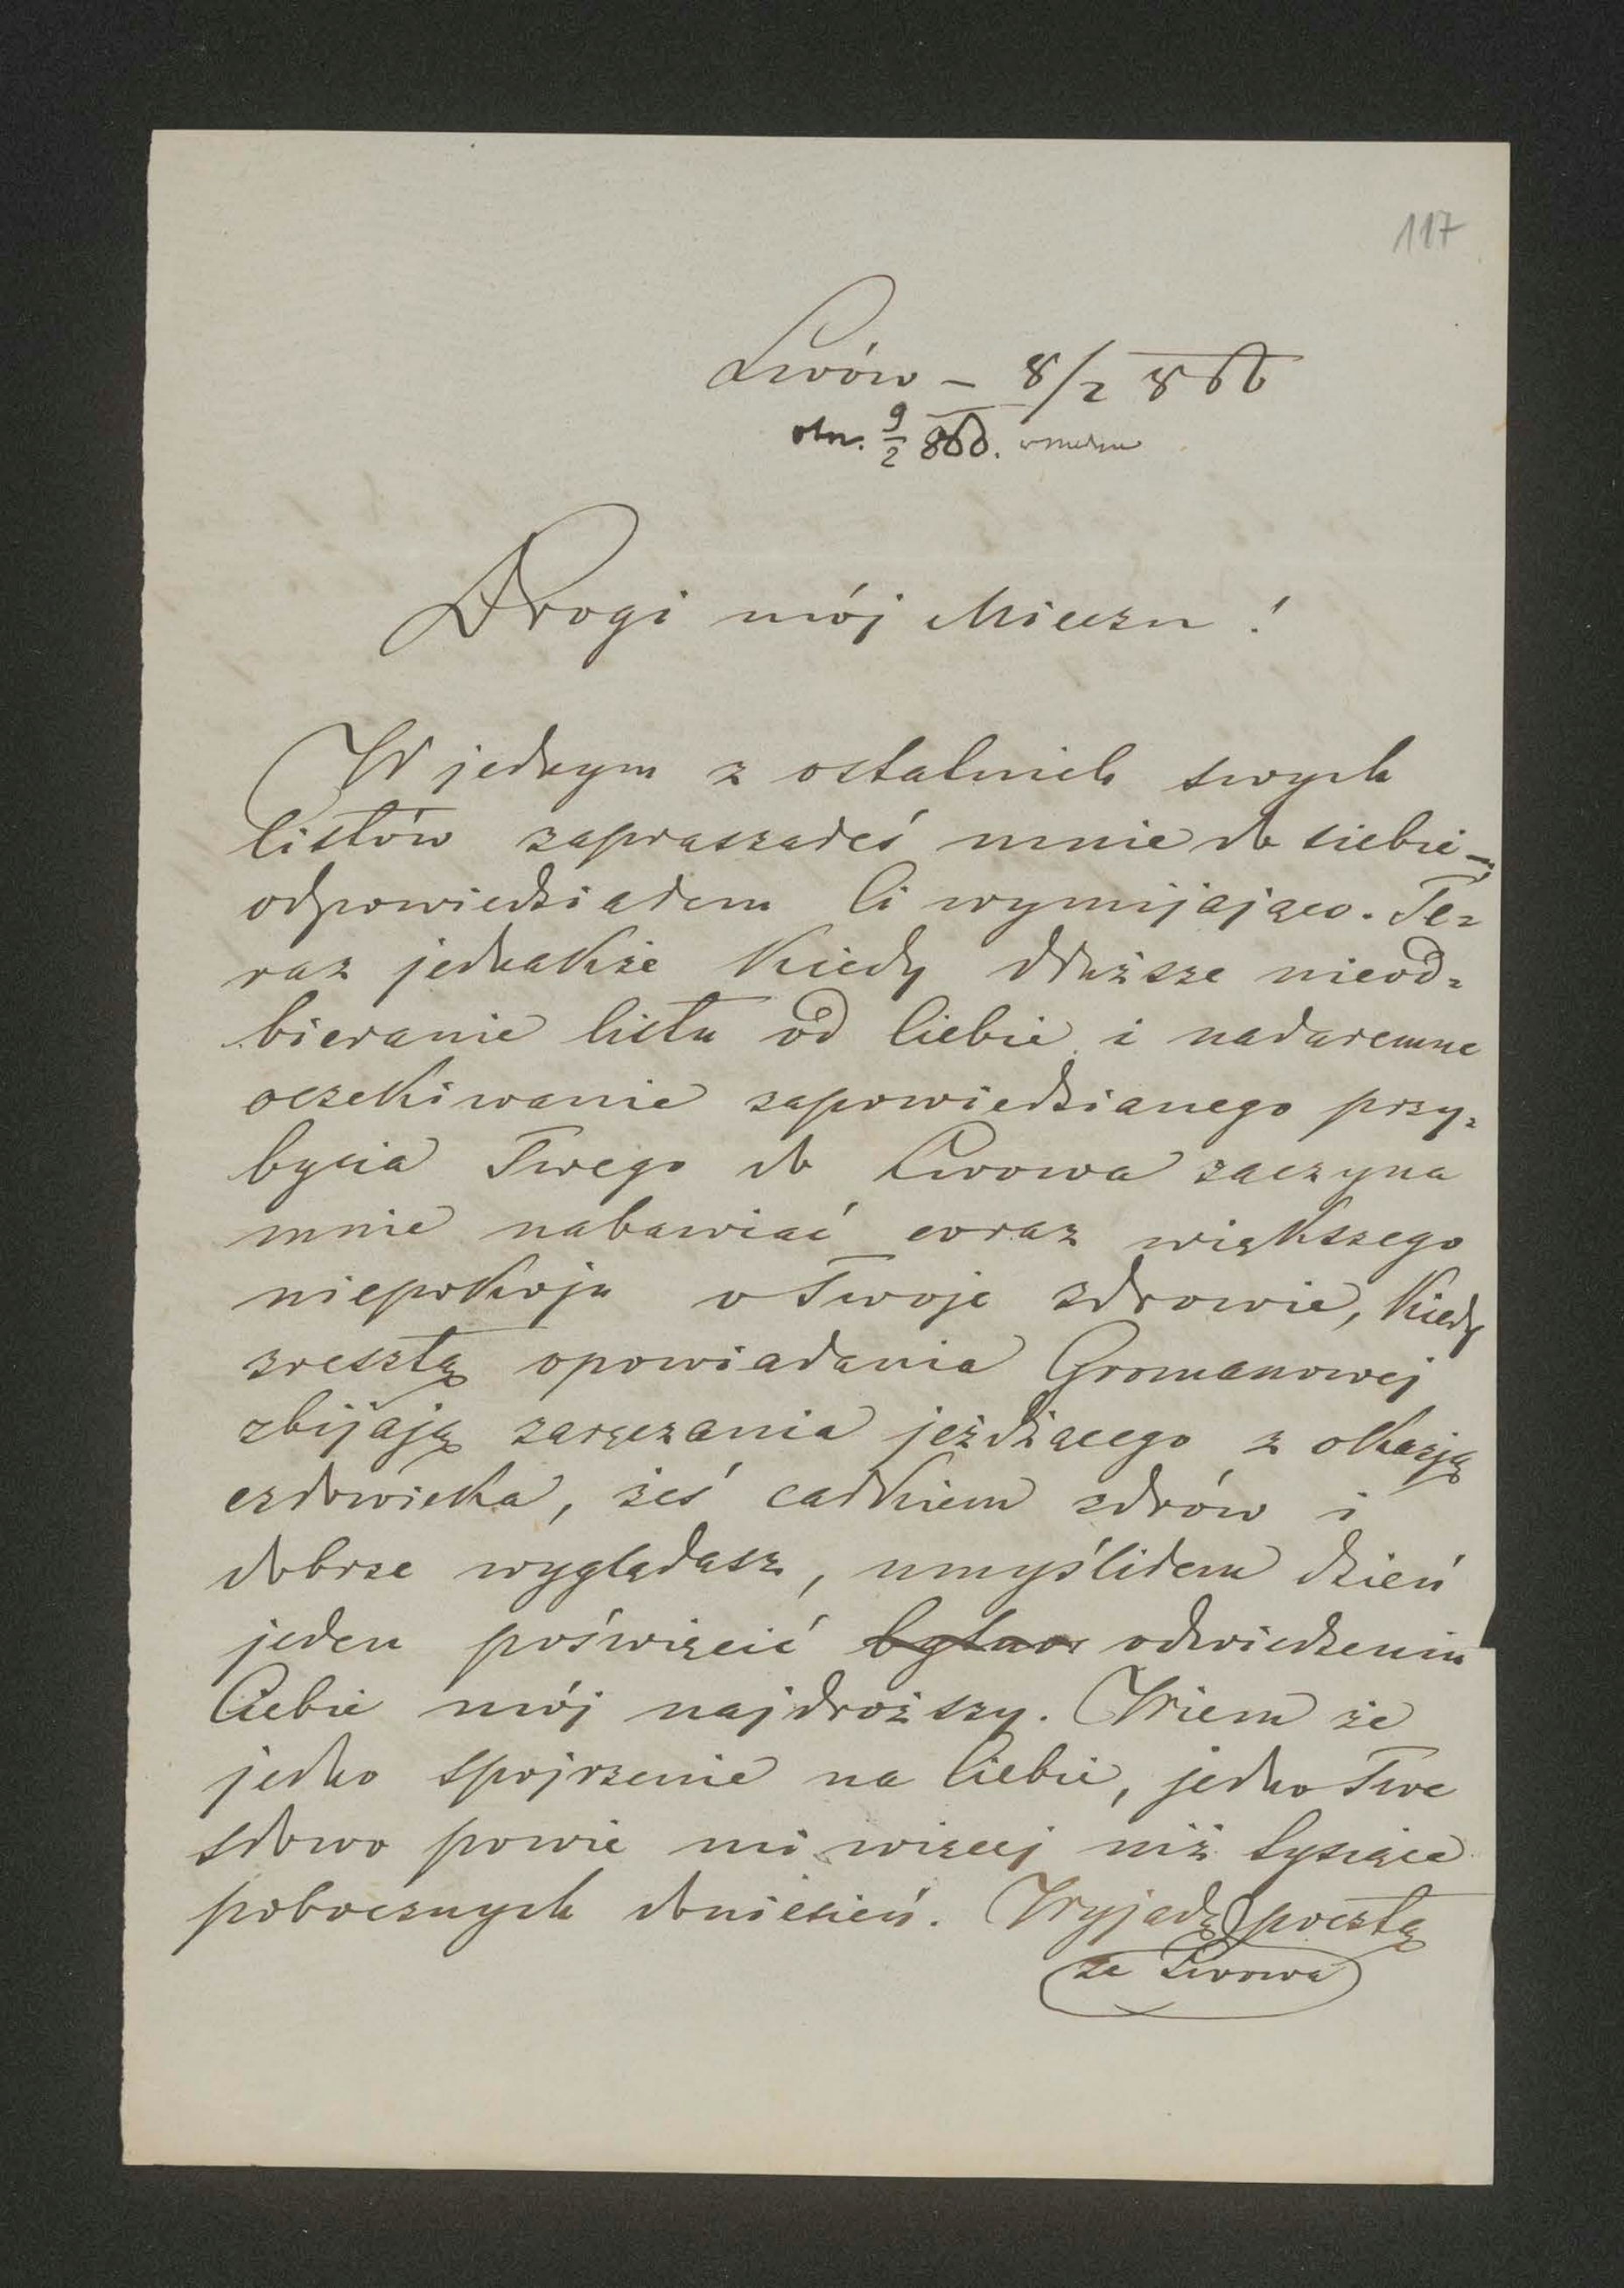 117
Lwów – 8/2 866
otr. 9/2 866.
Drogi mój Mieczu!
W jednym z ostatnich swych
listów zapraszałeś mnie do siebie –
odpowiedziałem Ci wymijająco. Te=
raz jednakże kiedy dłuższe nieod=
bieranie listu od Ciebie i nadaremne
oczekiwanie zapowiedzianego przy=
bycia Twego do Lwowa zaczyna
mnie nabawiać coraz większego
niepokoju o Twoje zdrowie, kiedy
zresztą opowiadania Gromanowej
zbijają zaręczania jeżdżącego z okazją
człowieka, żeś całkiem zdrów i
dobrze wyglądasz, umyśliłem dzień
jeden poświęcić odwiedzeniu
Ciebie mój najdroższy. Wiem że
jedno spojrzenie na Ciebie, jedno Twe
słowo powie mi więcej niż tysiące
pobocznych doniesień. Wyjadę pocztą
ze Lwowa